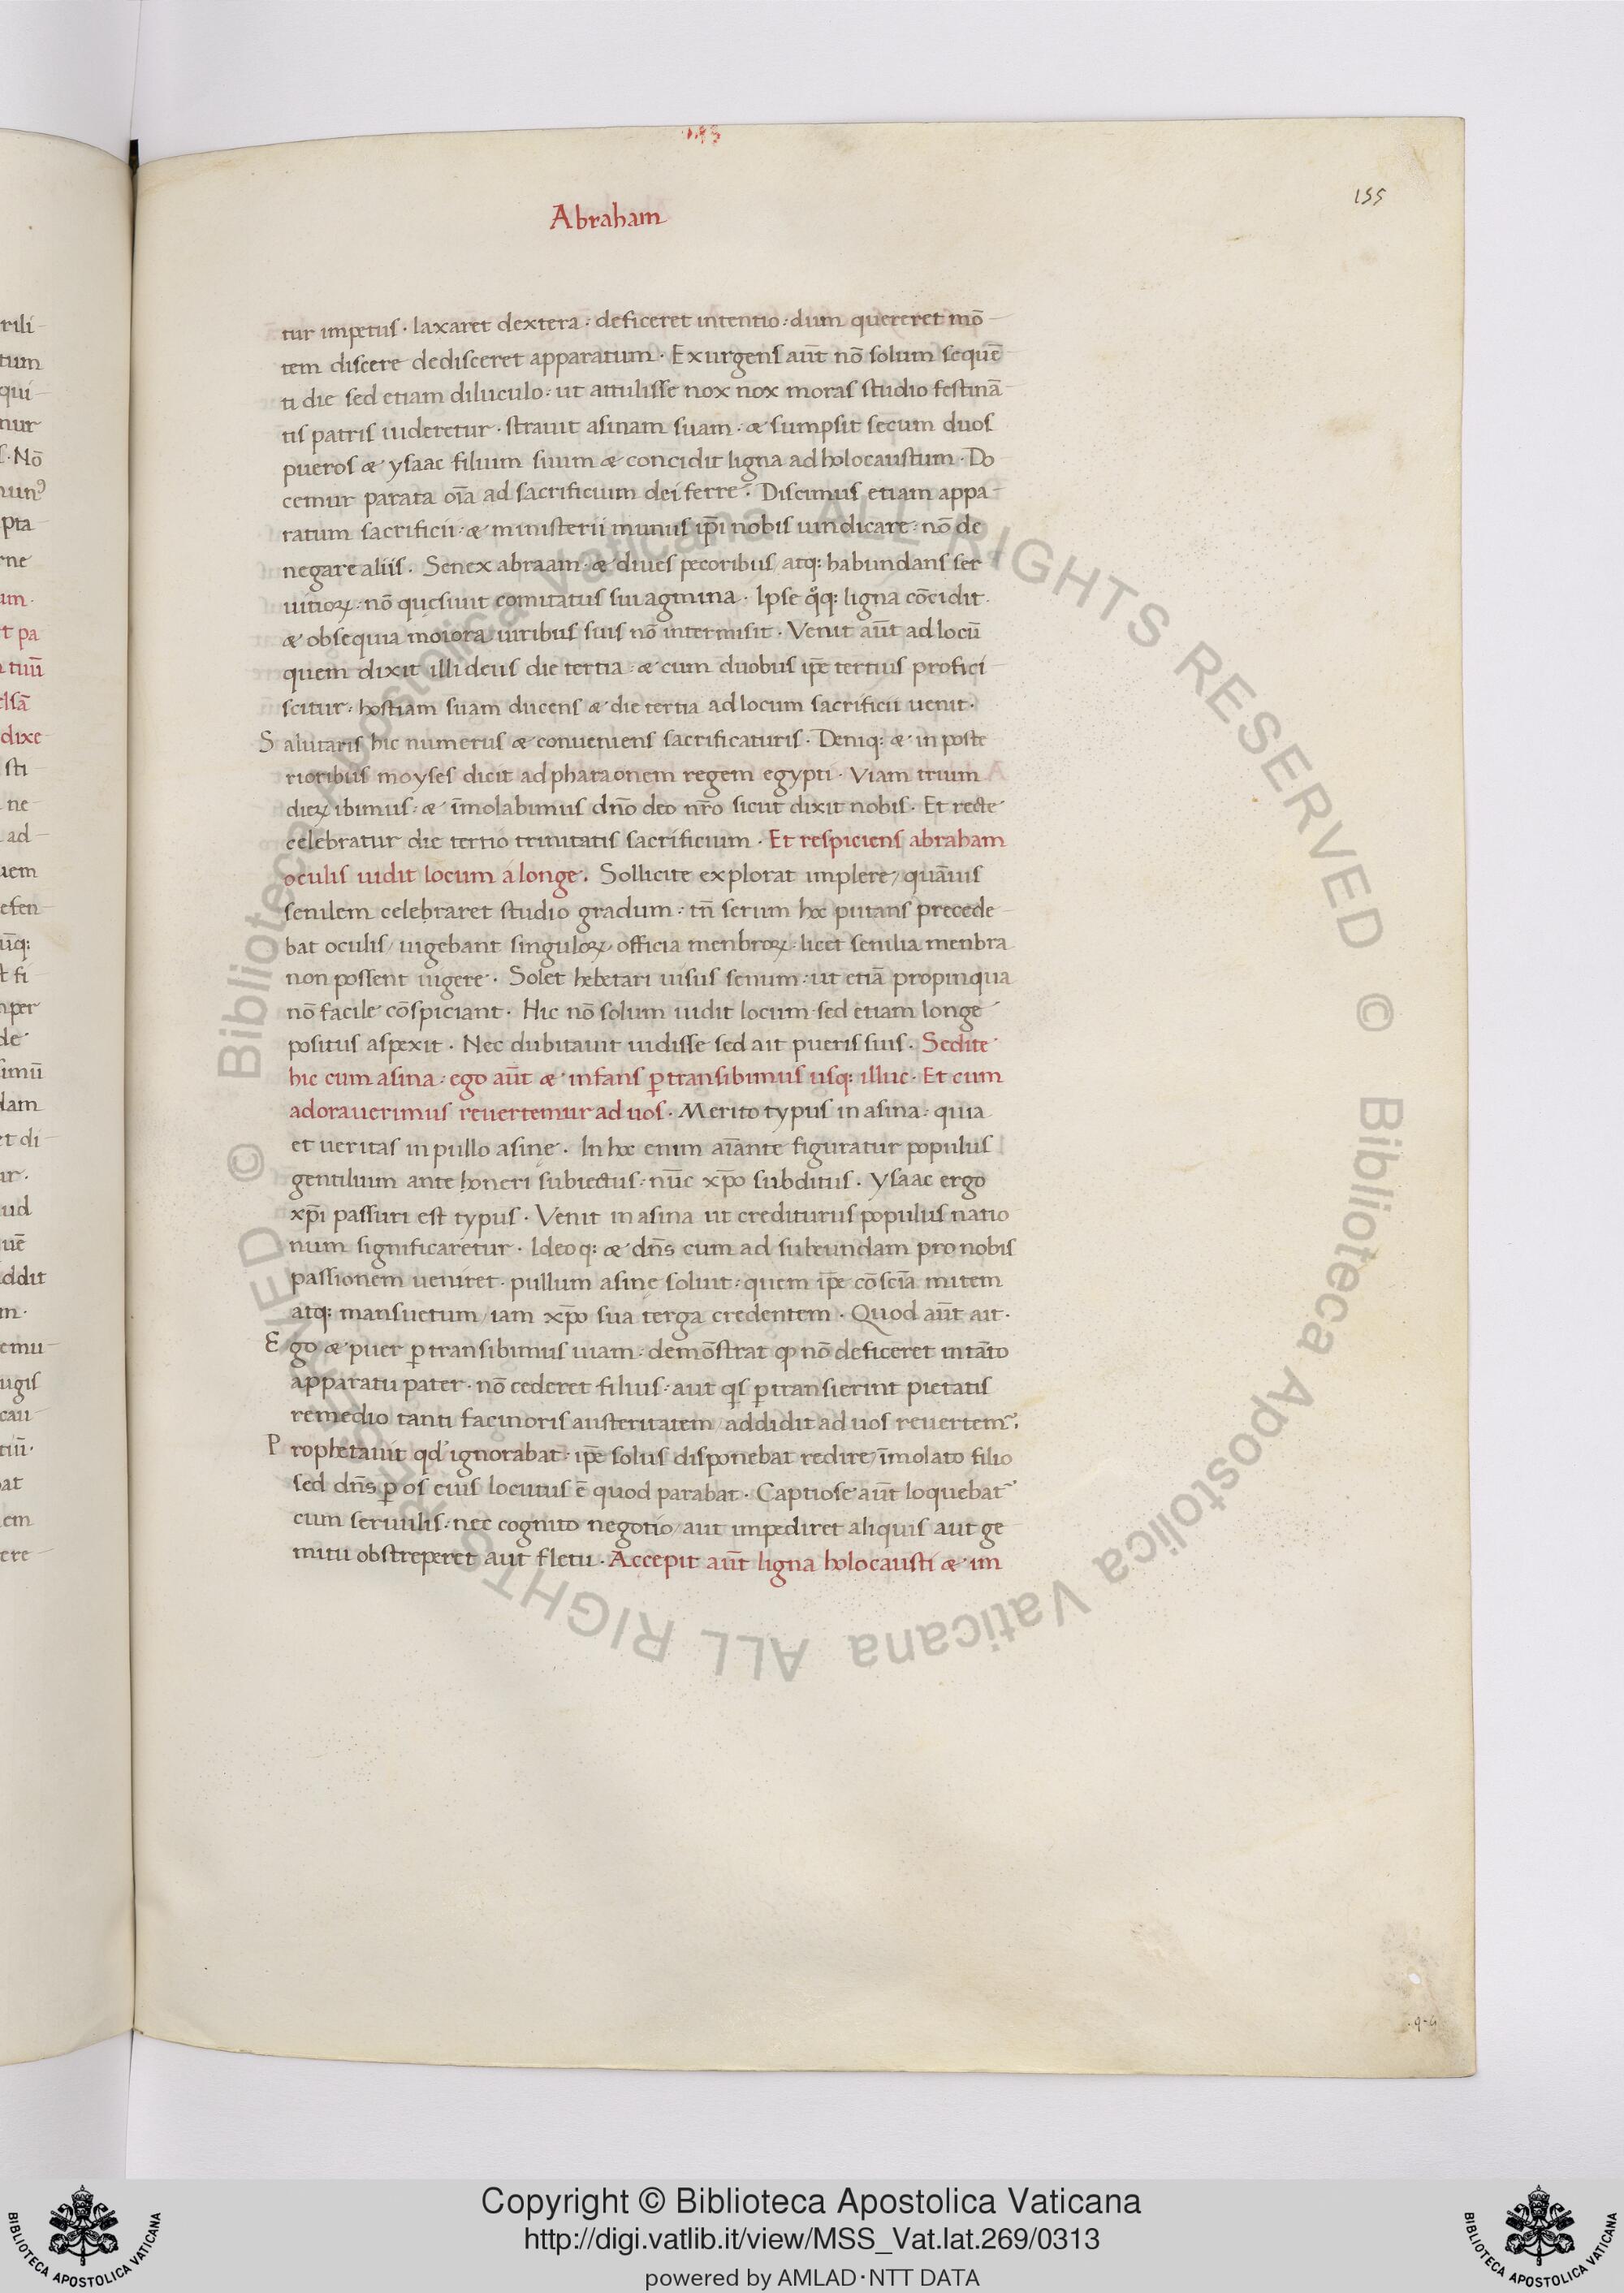 .155.
155
Abraham
tur impetus · laxaret dextera : deficeret intentio : dum quereret mō
tem discere dedisceret apparatum · Exurgens aūt nō solum sequē
ti die sed etiam diluculo : ut attulisse nox nox moras studio festinā
tis patris uideretur · strauit asinam suam · & sumpsit secum duos
pueros & ysaac filium suum & concidit ligna ad holocaustum · Do
cemur parata oīa ad sacrificium dei ferre · Discimus etiam appa
ratum sacrificii · & ministerii munus ip̄i nobis uindicare : nō de
negare aliis . Senex abraam · & diues pecoribus / atq: habundans ser
uitioꝝ · nō quęsiuit comitatus sui agmina · Ipse qͦq: ligna cōcidit ·
& obsequia moiora uiribus suis nō intermisit · Venit aūt ad locū
quem dixit illi deus die tertia : & cum duobus ip̄e tertius profici
scitur : hostiam suam ducens & die tertia ad locum sacrificii uenit ·
Salutaris hic numerus & conueniens sacrificaturis · Deniq: & in poste
rioribus moyses dicit ad pharaonem regem egypti · Viam trium
dieꝝ ibimus : & īmolabimus dn̄o deo nr̄o sicut dixit nobis · Et recte
celebratur die tertio trinitatis sacrificium · Et respiciens abraham
oculis uidit locum á longe . Sollicite explorat implere / quāuis
senilem celebraret studio gradum : tn̄ serum hoc putans precede
bat oculis / uigebant singuloꝝ officia menbroꝝ · licet senilia menbra
non possent uigere · Solet hebetari uisus senum : ut etiā propinqua
nō facile cōspiciant · Hic nō solum uidit locum sed etiam longe
positus aspexit · Nec dubitauit uidisse sed ait pueris suis · Sedite
hic cum asina : ego aūt & infans ꝑtransibimus usq: illuc · Et cum
adorauerimus reuertemur ad uos · Merito typus in asina : quia
et ueritas in pullo asinę · In hoc enim aīante figuratur populus
gentilium ante honeri subiectus : nūc xp̄o subditus · Ysaac ergo
xp̄i passuri est typus · Venit in asina ut crediturus populus natio
num significaretur · Ideo q: & dn̄s cum ad subeundam pro nobis
passionem ueniret · pullum asinę soluit : quem ip̄e cōscīa mitem
atq: mansuetum / iam xp̄o sua terga credentem · Quod aūt ait ·
Ego & puer ꝑtransibimus uiam : demōstrat ꝙ nō deficeret in tāto
apparatu pater · nō cederet filius : aut qͥs ꝑtransierint pietatis
remedio tanti facinoris austeritatem / addidit ad uos reuertem᷑.
Prophetauit qd' ignorabat : ip̄e solus disponebat redire / īmolato filio
sed dn̄s ꝑ os eius locutus ē quod parabat · Captiose aūt loquebat᷑
cum seruulis : nec cognito negotio / aut impediret aliquis aut ge
mitu obstreperet aut fletu · Accepit aūt ligna holocausti & im
Copyright © Biblioteca Apostolica Vaticana
http://digi.vatlib.it/view/MSS_Vat.lat.269/0313
powered by AMLAD·NTT DATA
BIBLIOTECA APOSTOLICA VATICANA
BIBLIOTECA APOSTOLICA VATICANA